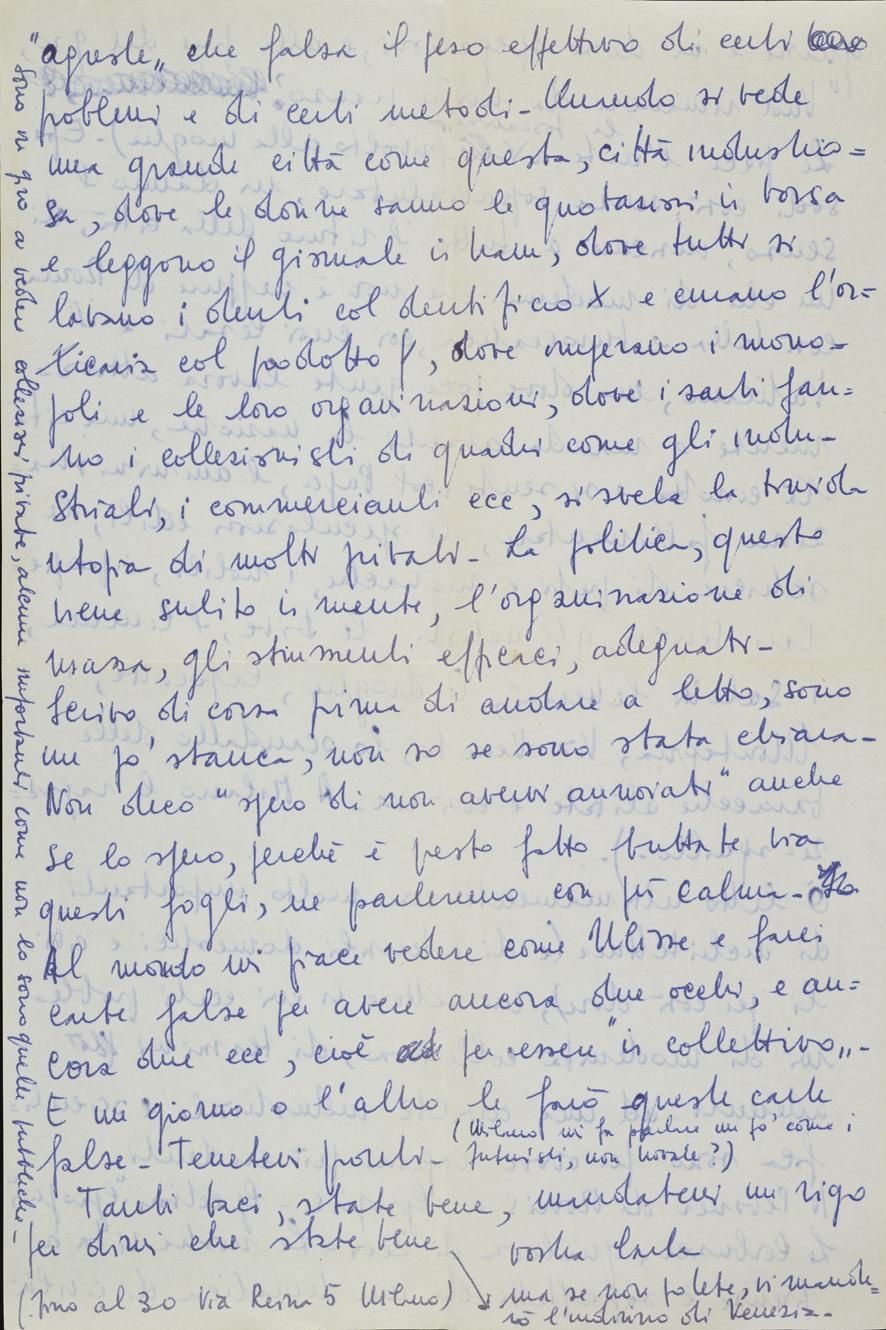 "agreste„ che falsa il peso effettivo di certi
problemi e di certi metodi - Quando si vede
una grande città come questa, città industrio=
sa, dove le donne sanno le quotazioni in borsa
e leggono il giornale in tram, dove tutti si
lavano i denti col dentifricio X e curano l'or=
ticaria col prodotto Y, dove imperano i mono=
poli e le loro organizzazioni, dove i sarti fan=
no i collezionisti di quadri come gli indu-
striali, i commercianti ecc, si svela la
utopia di molti privati - La politica, questo
viene subito in mente, l'organizzazione di
massa, gli strumenti efficaci, adeguati -
Scrivo di corsa prima di andare a letto, sono
un po' stanca, non so se sono stata chiara -
Non dico "spero di non avervi annoiati" anche
se lo spero, perché è presto fatto buttate via
questi fogli, ne parleremo con più calma -
Al mondo mi piace vedere come Ulisse e farei
carte false per avere ancora due occhi, e an=
cora due ecc, cioè per essere "in collettivo„ -
E un giorno o l'altro le farò queste carte
false - Tenetevi pronti -
(Milano mi fa parlare un po' come i
futuristi, non vi pare?)
Tanti baci, state bene, mandatemi un rigo
per dirmi che state bene
vostra Carla
(fino al 30 Via Reina 5 Milano)
ma se non potete, vi mande=
rò l'indirizzo di Venezia -
Sono in giro a vedere collezioni private, alcune importanti come non lo sono quelle pubbliche -